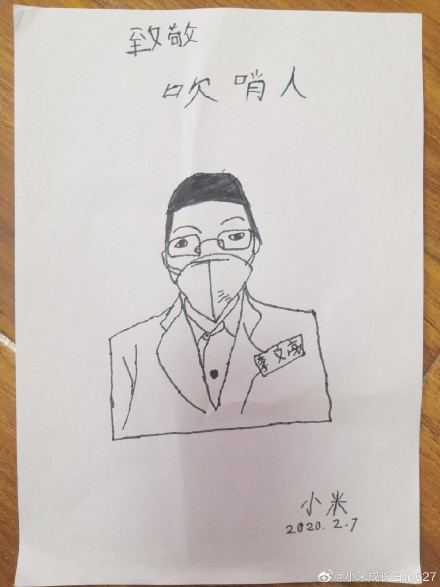 致敬
吹哨人
李文亮
小米
2020.2.7
@小米成长日记927